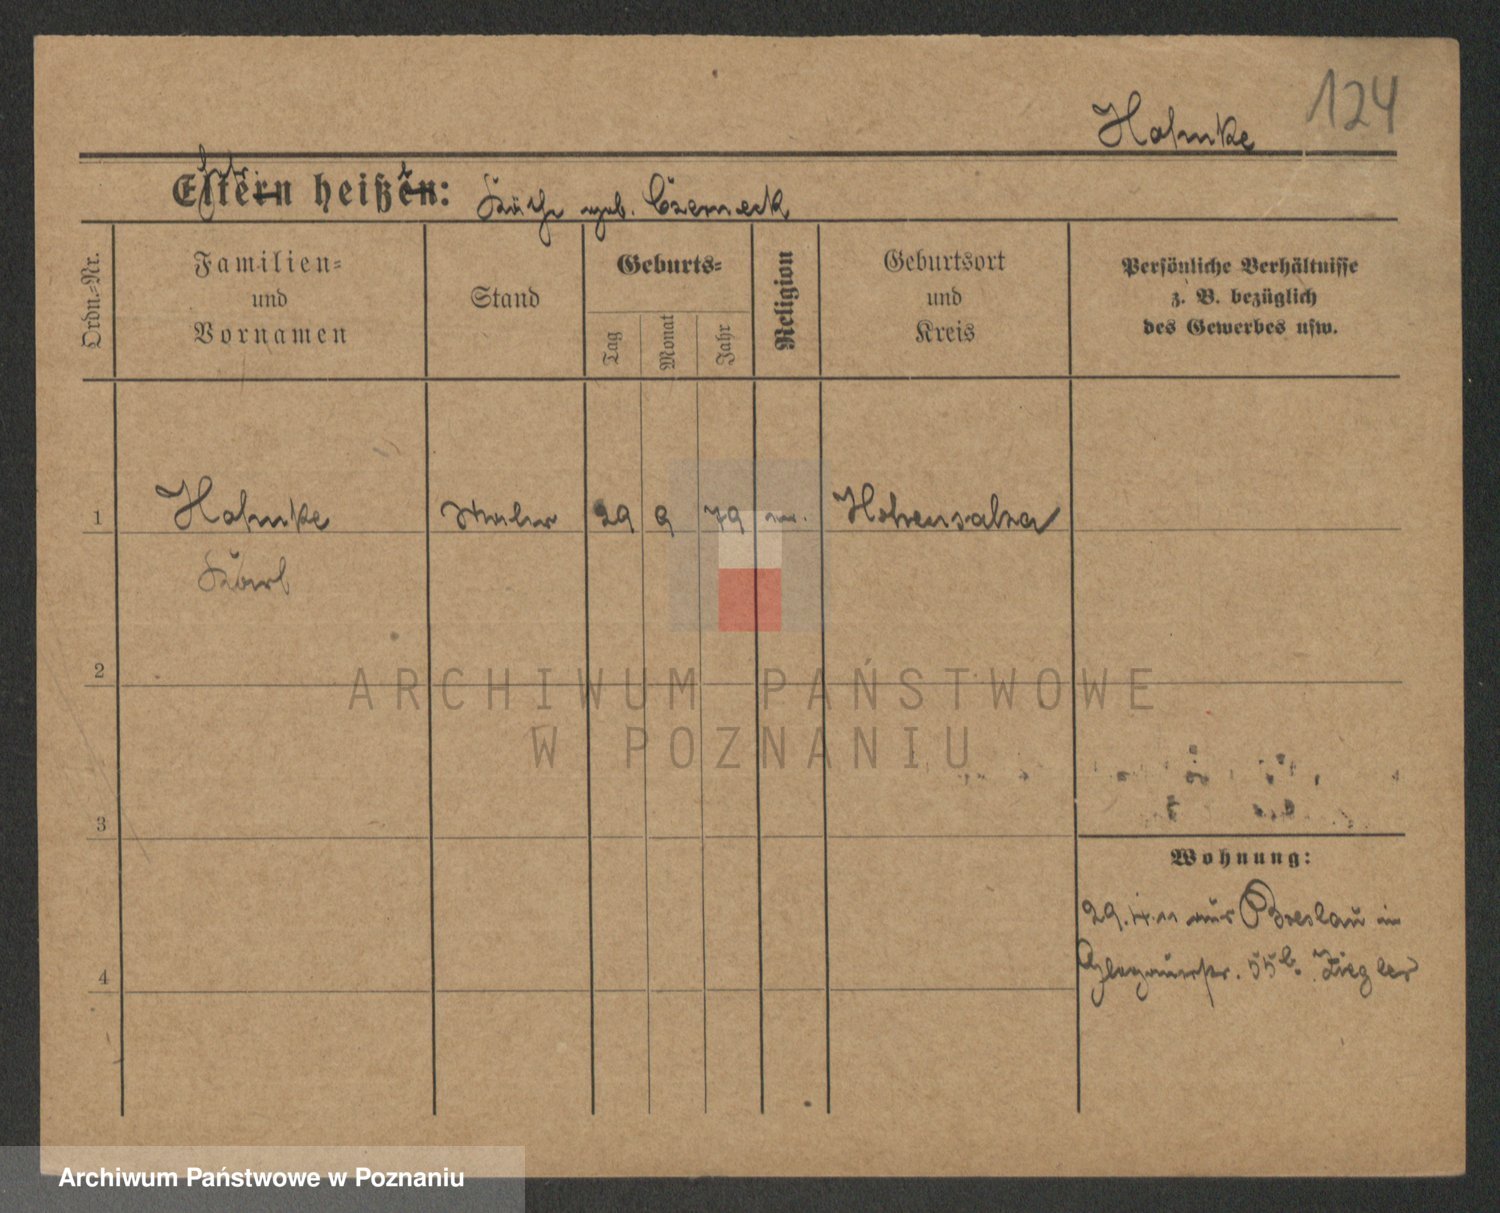 124
Hahnke
Eltern heißen: Käthe geb. Czerneck
Ordn.-Nr.
Familien-
und
Vornamen
Stand
Geburts-
Tag
Monat
Jahr
Religion
Geburtsort
und
Kreis
Persönliche Verhältnisse
z. B. bezüglich
des Gewerbes usw.
1 Hahnke 29 9 79 Hohensalza
Karl
2
3
4
Wohnung:
29.4.11 aus Breslau in
Glogauerstr. 55b. Ziegler
ARCHIWUM PAŃSTWOWE
W POZNANIU
Archiwum Państwowe w Poznaniu